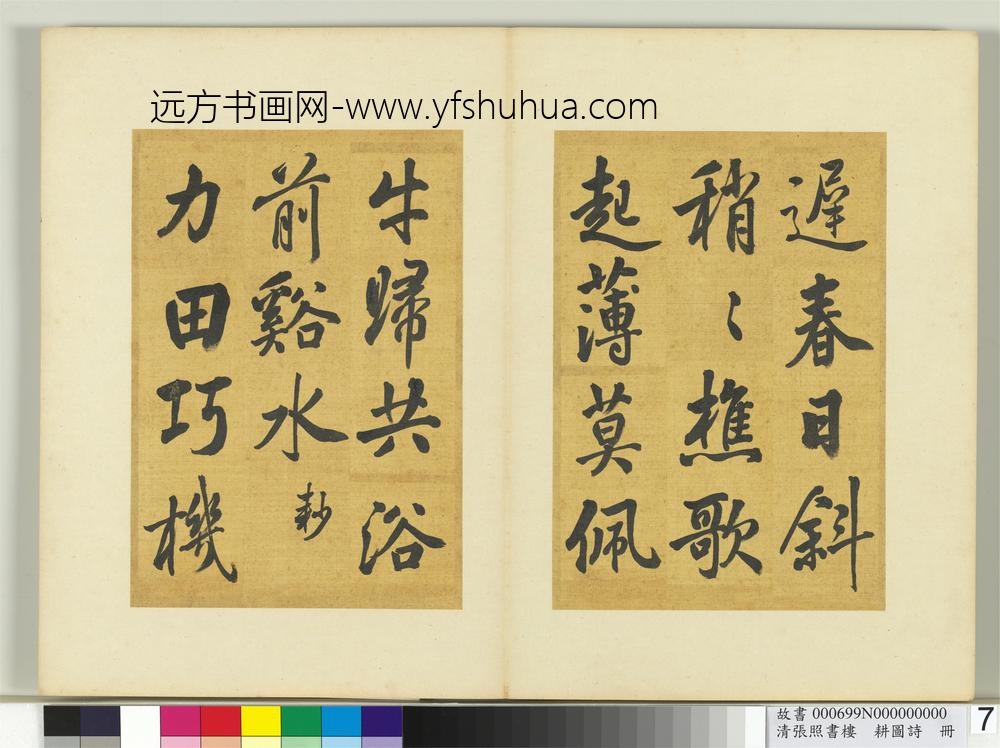 远方书画网-www.yfshuhua.com
遲春日斜
稍〻樵歌
起薄莫佩
牛歸共浴
前谿水 耖
力田巧機
故書 000699N000000000
清張照書樓　耕圖詩　冊
7